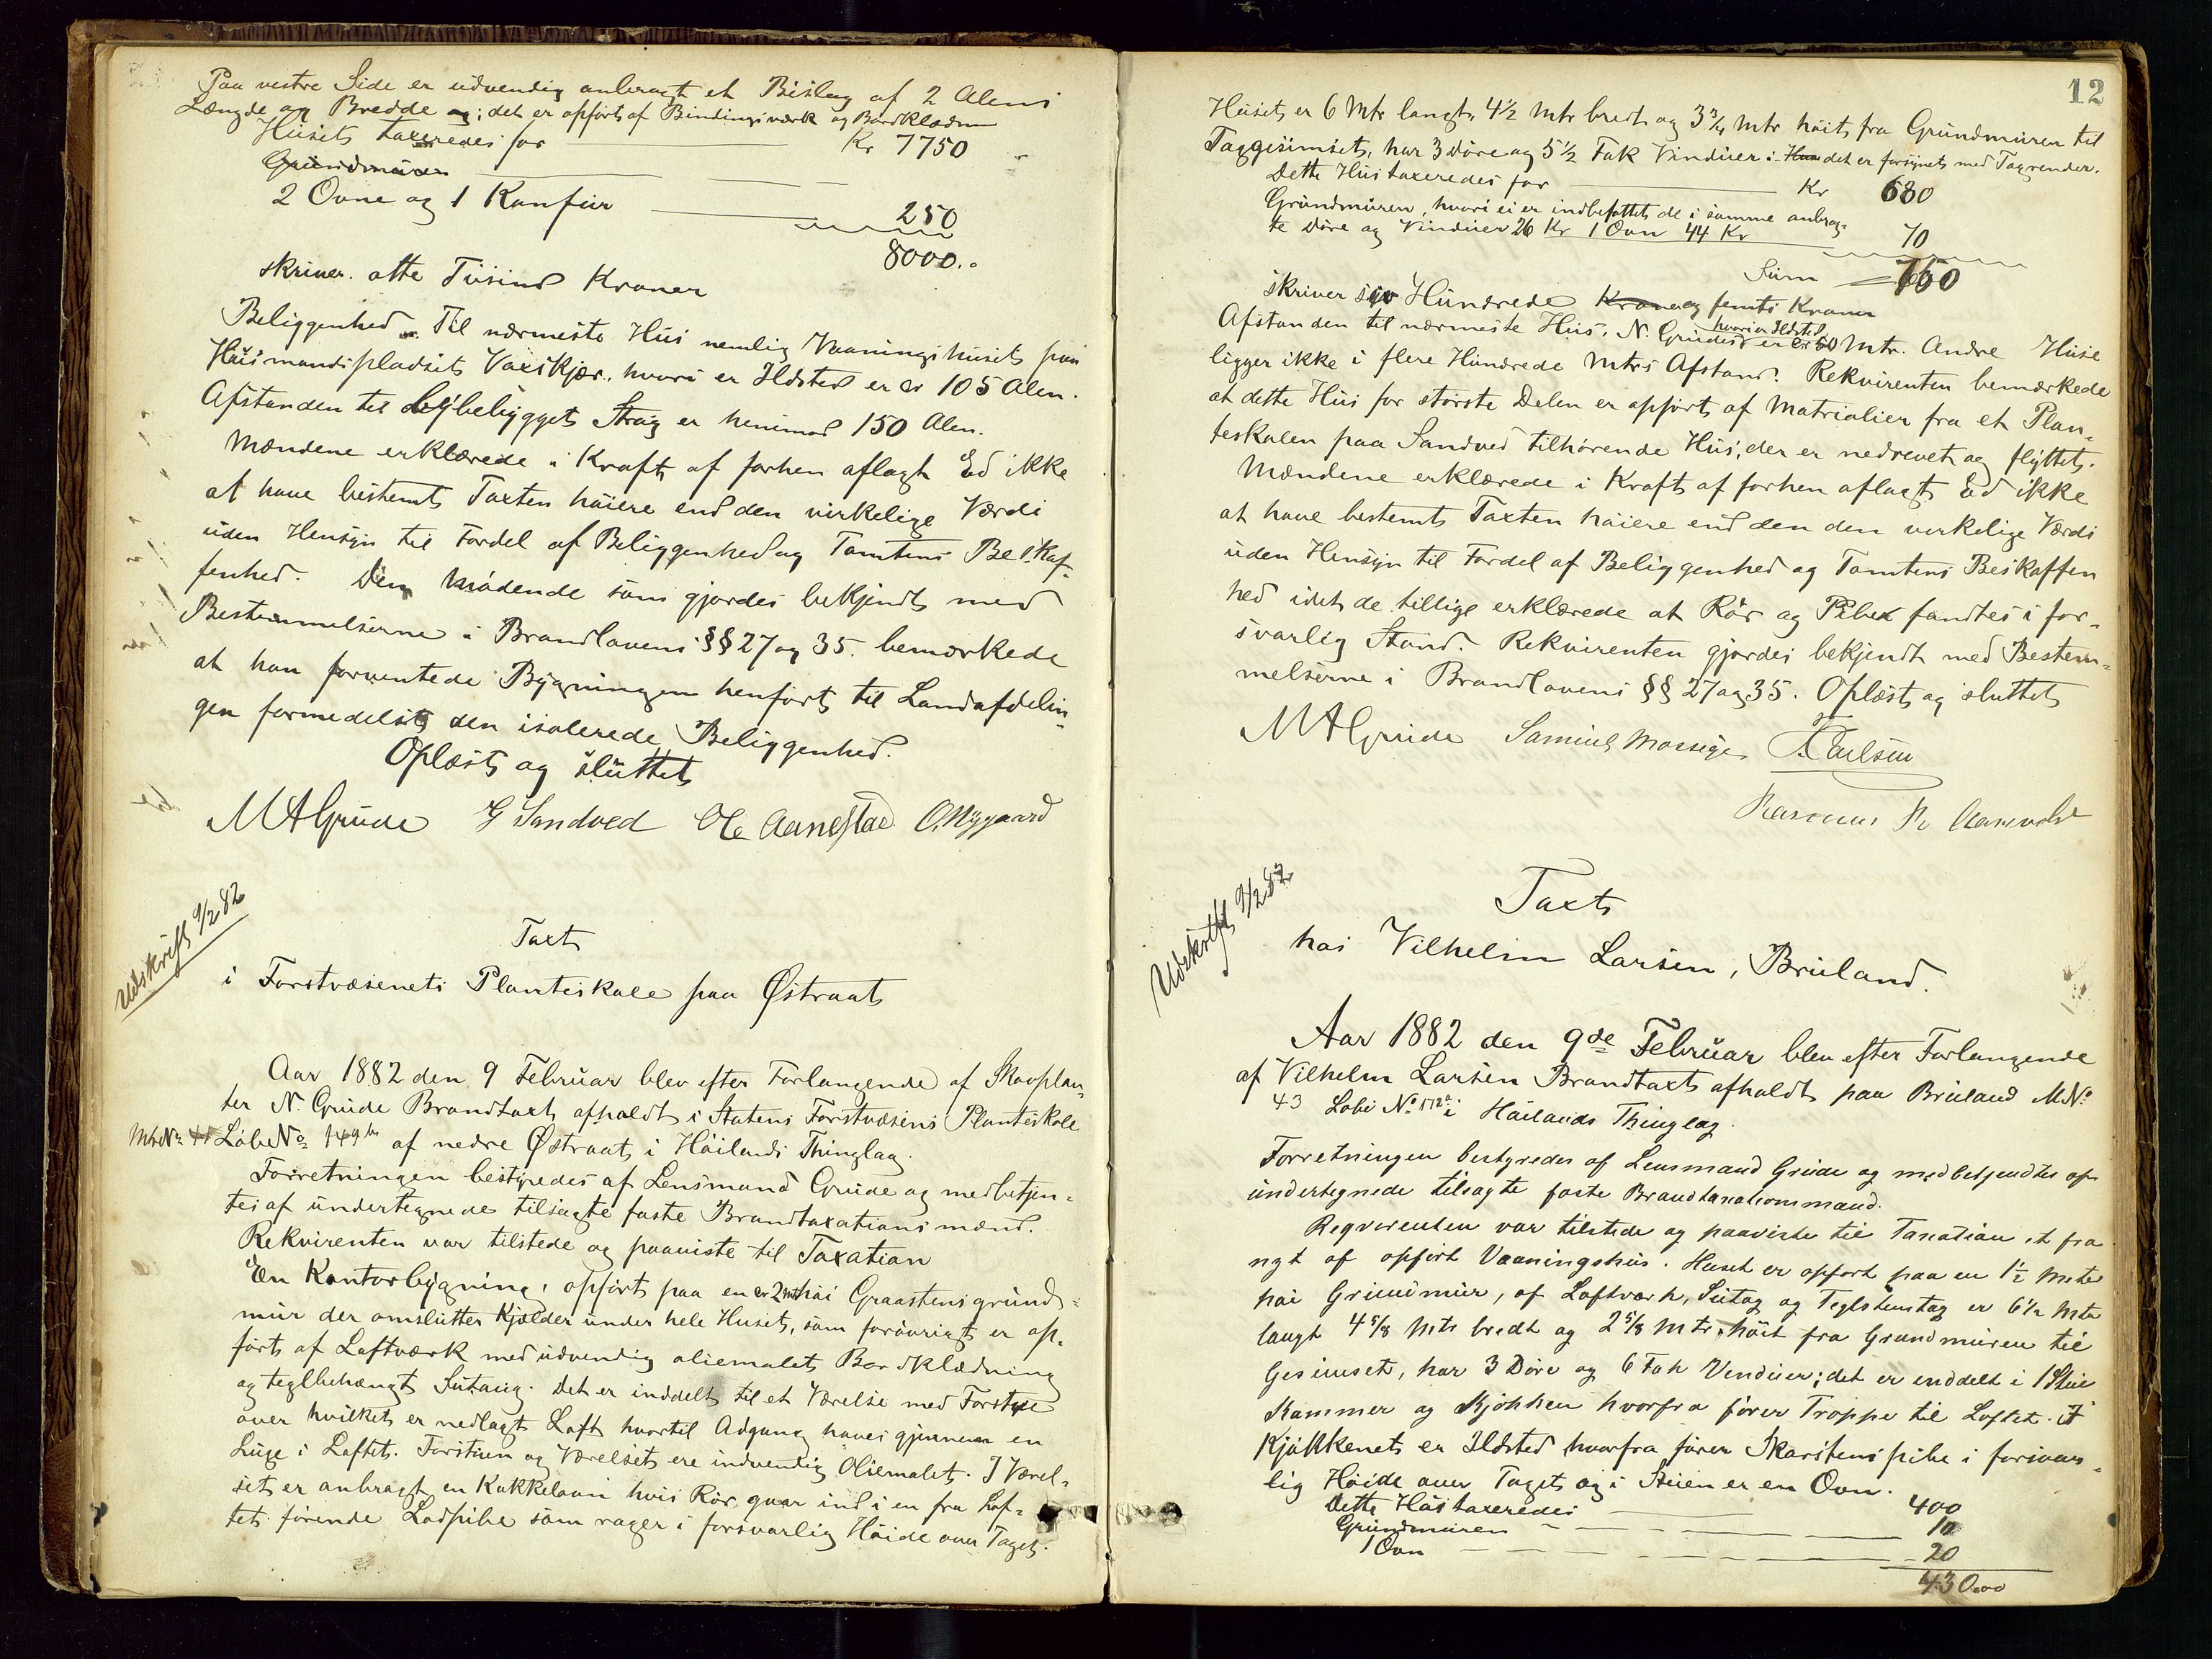 Paa vestre Side er udvendig anbragt et Bislag af 2 Alens
Længde og Bredde og; det er opført af Bindingsværk og Bordklædn
Huset taxeredes for Kr 7750
Grundmuren
2 Ovne og 1 Komfur 250
8000..
skriver otte Tusind Kroner
Beliggenhed. Til nærmeste Hus nemlig Vaaningshuset paa
Husmandspladsen Vaxskjær, hvori er Ildsted er er 105 Alen.
Afstanden til Bybebygget Strøg er henimod 150 Alen.
Mændene erklærede i Kraft af forhen aflagt Ed ikke
at have bestemt Taxten høiere end den virkelige Værdi
uden Hensyn til Fordel af Beliggenhed og Tomtens Beskaf-
fenhed. Den mødende som gjordes bekjendt med
Bestemmelserne i Brandlovens §§ 27 og 35. bemærkede
at han forventede Bygningen henført til Landafdelin-
gen formedelst den isolerede Beliggenhed.
Oplæst og sluttet
M A Grude G Sandved Ole Aanestad O. Nygaard
Udskrift 9/2 82
Taxt
i Forstvæsenets Planteskole paa Østraat
Aar 1882 den 9 Februar blev efter Forlangende af Skovplan-
ter N. Grude Brandtaxt afholdt i Statens Forstvæsens Planteskole
MtrNr 41 LøbeNo 149 af nedre Østraat i Høilands Thinglag.
Forretningen bestyredes af Lensmand Grude og medbetjen-
tes af undertegnede tilsagte faste Brandtaxationsmænd.
Rekvirenten var tilstede og paaviste til Taxation
En Kontorbygning, opført paa en er 2 mtr høi Graastensgrund-
mur der omslutter Kjælder under hele Huset, som forøvrigt er op-
ført af Loftværk med udvendig oliemalet Bordklædning
og teglbehængt Sutaug. Det er inddelt til et Værelse med Forstue
over hvilket er nedlagt Loft hvortil Adgang haves gjennem en
Luge i Loftet. Forstuen og Værelset ere indvendig Oliemalet. I Værel-
set er anbragt en Kakkelovn hvis Rør gaar ind i en fra Lof-
tet førende Lodpibe som rager i forsvarlig Høide over Taget.
12
Huset er 6 Mtr langt, 4½ Mtr bredt og 3¾ Mtr høit fra Grundmuren til
Taggesimset, har 3 Døre og 5½ Fak Vinduer i Hus det er forsynet med Tagrender.
Dette Hus taxeredes for Kr 680
Grundmuren, hvori ei er indbefattet de i samme anbrag-
te Døre og Vinduer 26 Kr 1 Ovn 44 Kr 70
Sum 750
skriver syv Hundrede Kroner og femti Kroner
Afstanden til nærmeste Hus, N. Grudes hvori er Ildsted er er 50 Mtr. Andre Huse
ligger ikke i flere Hundrede Mtrs Afstand. Rekvirenten bemærkede
at dette Hus for største Delen er opført af Matrialier fra et Plan-
teskolen paa Sandved tilhørende Hus, der er nedrevet og flyttet.
Mændene erklærede i Kraft af forhen aflagt Ed ikke
at have bestemt Taxten høiere end den den virkelige Værdi
uden Hensyn til Fordel af Beliggenhed og Tomtens Beskaffen
hed idet de tillige erklærede at Rør og Piber fandtes i for-
svarlig Stand. Rekvirenten gjordes bekjendt med Bestem-
melserne i Brandlovens §§ 27 og 35. Oplæst og sluttet
M A Grude Samuel Mossige T Carlsen
Rasmus R. Aasevold
Udskrift 9/2 82
Taxt
hos Vilhelm Larsen, Bruland.
Aar 1882 den 9de Februar blev efter Forlangende
af Vilhelm Larsen Brandtaxt afholdt paa Bruland M.No
43 Løbe No 172a i Høilands Thinglag.
Forretningen bestyredes af Lensmand Grude og medbetjendtes af
undertegnede tilsagte faste Brandtaxationsmænd.
Reqvirenten var tilstede og paaviste til Taxation et fra
nyt af opført Vaaningshus. Huset er opført paa en 1½ Meter
høi Grundmur, af Loftværk, Sutag og Teglstenstag er 6½ Mtr
langt 4 5/8 Mtr bredt og 2 5/8 Mtr høit fra Grundmuren til
Gesimset, har 3 Døre og 6 Fak Vinduer; det er inddelt i 1 Stue
Kammer og Kjøkken hvorfra fører Trappe til Loftet. I
Kjøkkenet er Ildsted hvorfra fører Skorstenspibe i forsvar-
lig Høide over Taget og i Stuen er en Ovn.
Dette Hus taxeredes 400
Grundmuren 10
1 Ovn 20
430.00